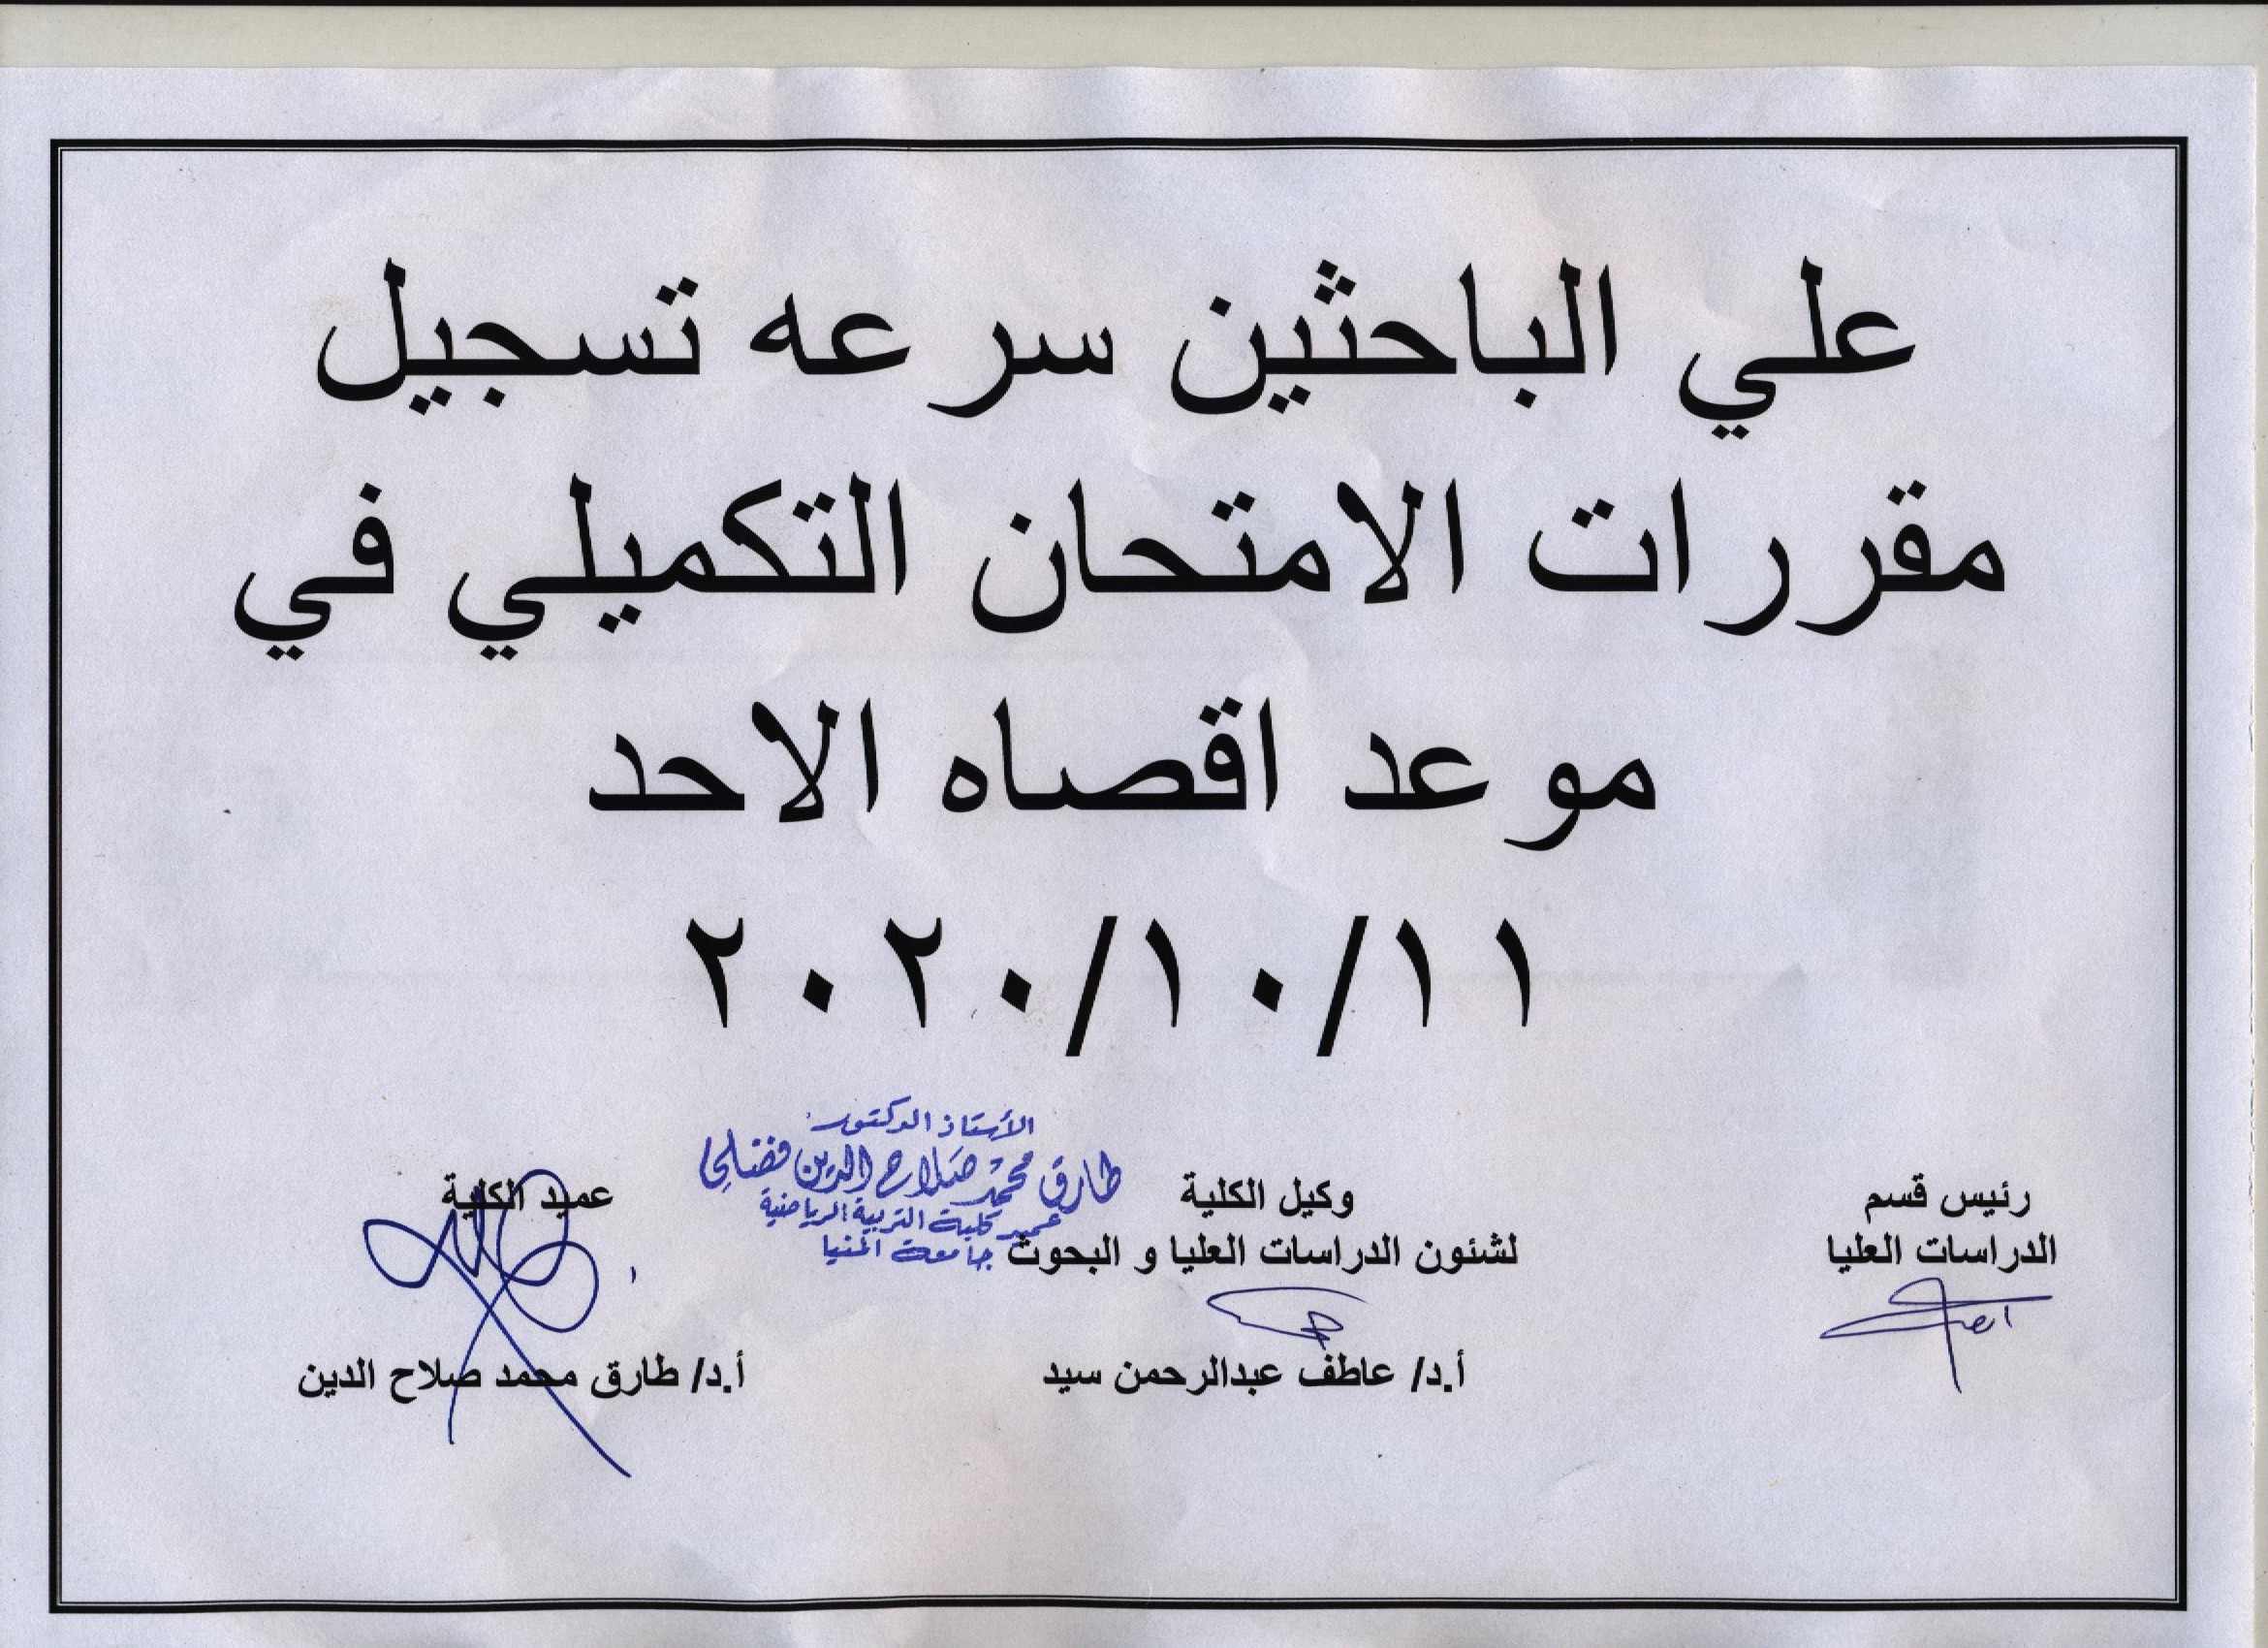 علي الباحثين سرعه تسجيل
مقررات الامتحان التكميلي في
موعد اقصاه الاحد
١١/١٠/٢٠٢٠
الأستاذ الدكتور
طارق محمد صلاح الدين فضلي
عميد كلية التربية الرياضية
جامعة المنيا
رئيس قسم
الدراسات العليا
وكيل الكلية
لشئون الدراسات العليا و البحوث
أ.د/ عاطف عبدالرحمن سيد
عميد الكلية
أ.د/ طارق محمد صلاح الدين